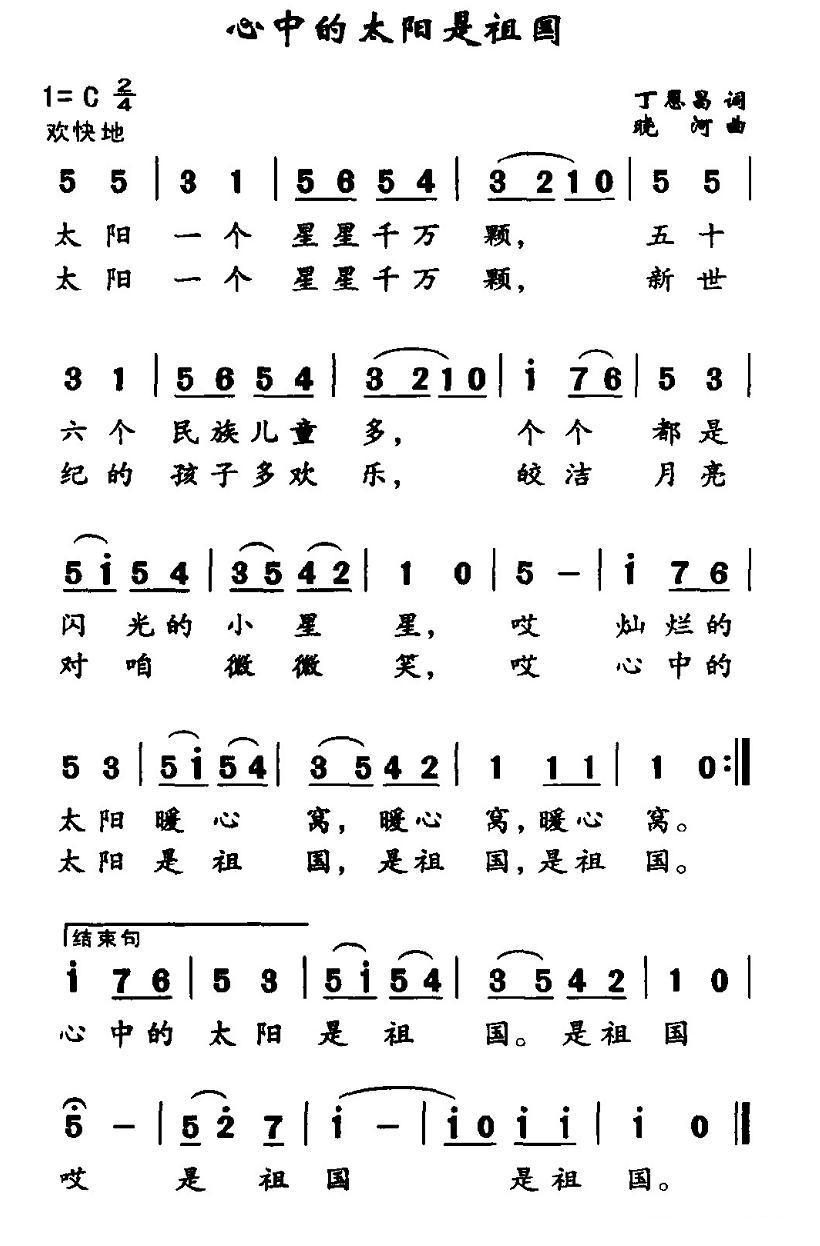 心中的太阳是祖国
1=C 2/4
丁恩昌 词
欢快地
晓 河 曲
5 5 | 3 1 | 5 6 5 4 | 3 2 1 0 | 5 5 |
太 阳 一 个 星 星 千 万 颗, 五 十
太 阳 一 个 星 星 千 万 颗, 新 世
3 1 | 5 6 5 4 | 3 2 1 0 | i 7 6 | 5 3 |
六 个 民 族 儿 童 多, 个 个 都 是
纪 的 孩 子 多 欢 乐, 皎 洁 月 亮
5 i 5 4 | 3 5 4 2 | 1 0 | 5 - | i 7 6 |
闪 光 的 小 星 星, 哎 灿 烂 的
对 咱 微 微 笑, 哎 心 中 的
5 3 | 5 i 5 4 | 3 5 4 2 | 1 1 1 | 1 0 :||
太 阳 暖 心 窝, 暖 心 窝, 暖 心 窝。
太 阳 是 祖 国, 是 祖 国, 是 祖 国。
结束句
i 7 6 | 5 3 | 5 i 5 4 | 3 5 4 2 | 1 0 |
心 中 的 太 阳 是 祖 国。 是 祖 国
5 - | 5 2 7 | i - | i 0 i i | i 0 ||
哎 是 祖 国 是 祖 国。